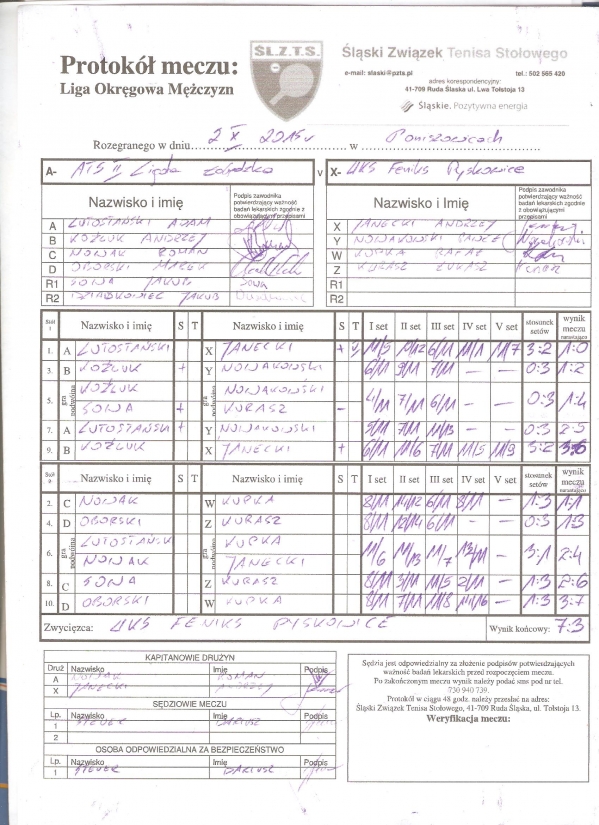 Protokół meczu:
Liga Okręgowa Mężczyzn
ŚL.Z.T.S.
Śląski Związek Tenisa Stołowego
e-mail: slaski@pzts.pl tel.: 502 565 420
adres korespondencyjny:
41-709 Ruda Śląska ul. Lwa Tołstoja 13
Śląskie. Pozytywna energia
Rozegranego w dniu 2 X 2015r w Poniszowicach
A- ATS II Ligota v X- UKS Feniks Pyskowice
Nazwisko i imię Podpis zawodnika potwierdzający ważność badań lekarskich zgodnie z obowiązującymi przepisami Nazwisko i imię Podpis zawodnika potwierdzający ważność badań lekarskich zgodnie z obowiązującymi przepisami
A LUTOSTAŃSKI ADAM X JANECKI ANDRZEJ
B KOŹLUK ANDRZEJ Y NOWAKOWSKI
C NOWAK ROMAN W KUPKA RAFAŁ
D OBORSKI MAREK Z KURASZ ŁUKASZ
R1 SOWA JAKUB SOWA R1
R2 JAKUB R2
Stół 1 Nazwisko i imię S T Nazwisko i imię S T I set II set III set IV set V set stosunek setów wynik meczu narastająco
1. A LUTOSTAŃSKI X JANECKI + 6/11 11/7 3:2 1:0
3. B KOŹLUK + Y NOWAKOWSKI 6/11 9/11 7/11 — — 0:3 1:2
5. gra podwójna KOŹLUK gra podwójna NOWAKOWSKI
SOWA + KURASZ — 4/11 7/11 6/11 — — 0:3 1:4
7. A LUTOSTAŃSKI + Y NOWAKOWSKI 7/11 — — 0:3 2:5
9. B KOŹLUK X JANECKI + 6/11 11/6 7/11 11/5 11/9 3:2 3:6
Stół 2 Nazwisko i imię S T Nazwisko i imię S T I set II set III set IV set V set stosunek setów wynik meczu narastająco
2. C NOWAK W KUPKA 8/11 14/12 6/11 8/11 — 1:3 1:1
4. D OBORSKI Z KURASZ 8/11 12/14 6/11 — — 0:3 1:3
6. gra podwójna LUTOSTAŃSKI gra podwójna KUPKA
NOWAK JANECKI 11/6 11/13 11/7 — 3:1 2:4
8. C SOWA Z KURASZ 8/11 3/11 11/5 2/11 — 1:3 2:6
10. D OBORSKI W KUPKA 8/11 7/11 11/8 — 1:3 3:7
Zwycięzca: UKS FENIKS PYSKOWICE Wynik końcowy: 7:3
KAPITANOWIE DRUŻYN
Druż Nazwisko Imię Podpis
A NOWAK ROMAN
X JANECKI ANDRZEJ
SĘDZIOWIE MECZU
Lp. Nazwisko Imię Podpis
1 STEUER DARIUSZ
2
OSOBA ODPOWIEDZIALNA ZA BEZPIECZEŃSTWO
Lp. Nazwisko Imię Podpis
1 STEUER DARIUSZ
Sędzia jest odpowiedzialny za złożenie podpisów potwierdzających
ważność badań lekarskich przed rozpoczęciem meczu.
Po zakończonym meczu wynik należy podać sms pod nr tel.
730 940 739.
Protokół w ciągu 48 godz. należy przesłać na adres:
Śląski Związek Tenisa Stołowego, 41-709 Ruda Śląska, ul. Tołstoja 13.
Weryfikacja meczu: